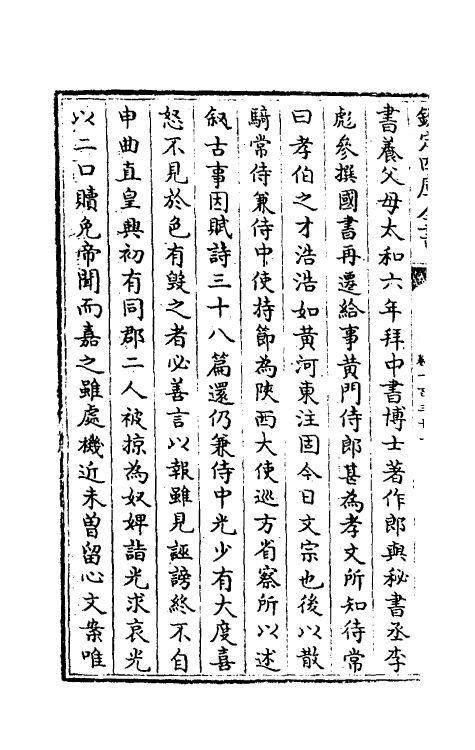 欽定四庫全書
卷一百三十一
書養父母太和六年拜中書博士著作郎與秘書丞李
彪參撰國書再遷給事黃門侍郎甚為孝文所知待常
曰孝伯之才浩浩如黃河東注固今日文宗也後以散
騎常侍兼侍中使持節為陜西大使巡方省察所以述
叙古事因賦詩三十八篇還仍兼侍中光少有大度喜
怒不見於色有毀之者必善言以報雖見誣謗終不自
申曲直皇興初有同郡二人被掠為奴婢詣光求哀光
以二口贖免帝聞而嘉之雖處機近未曽留心文案唯